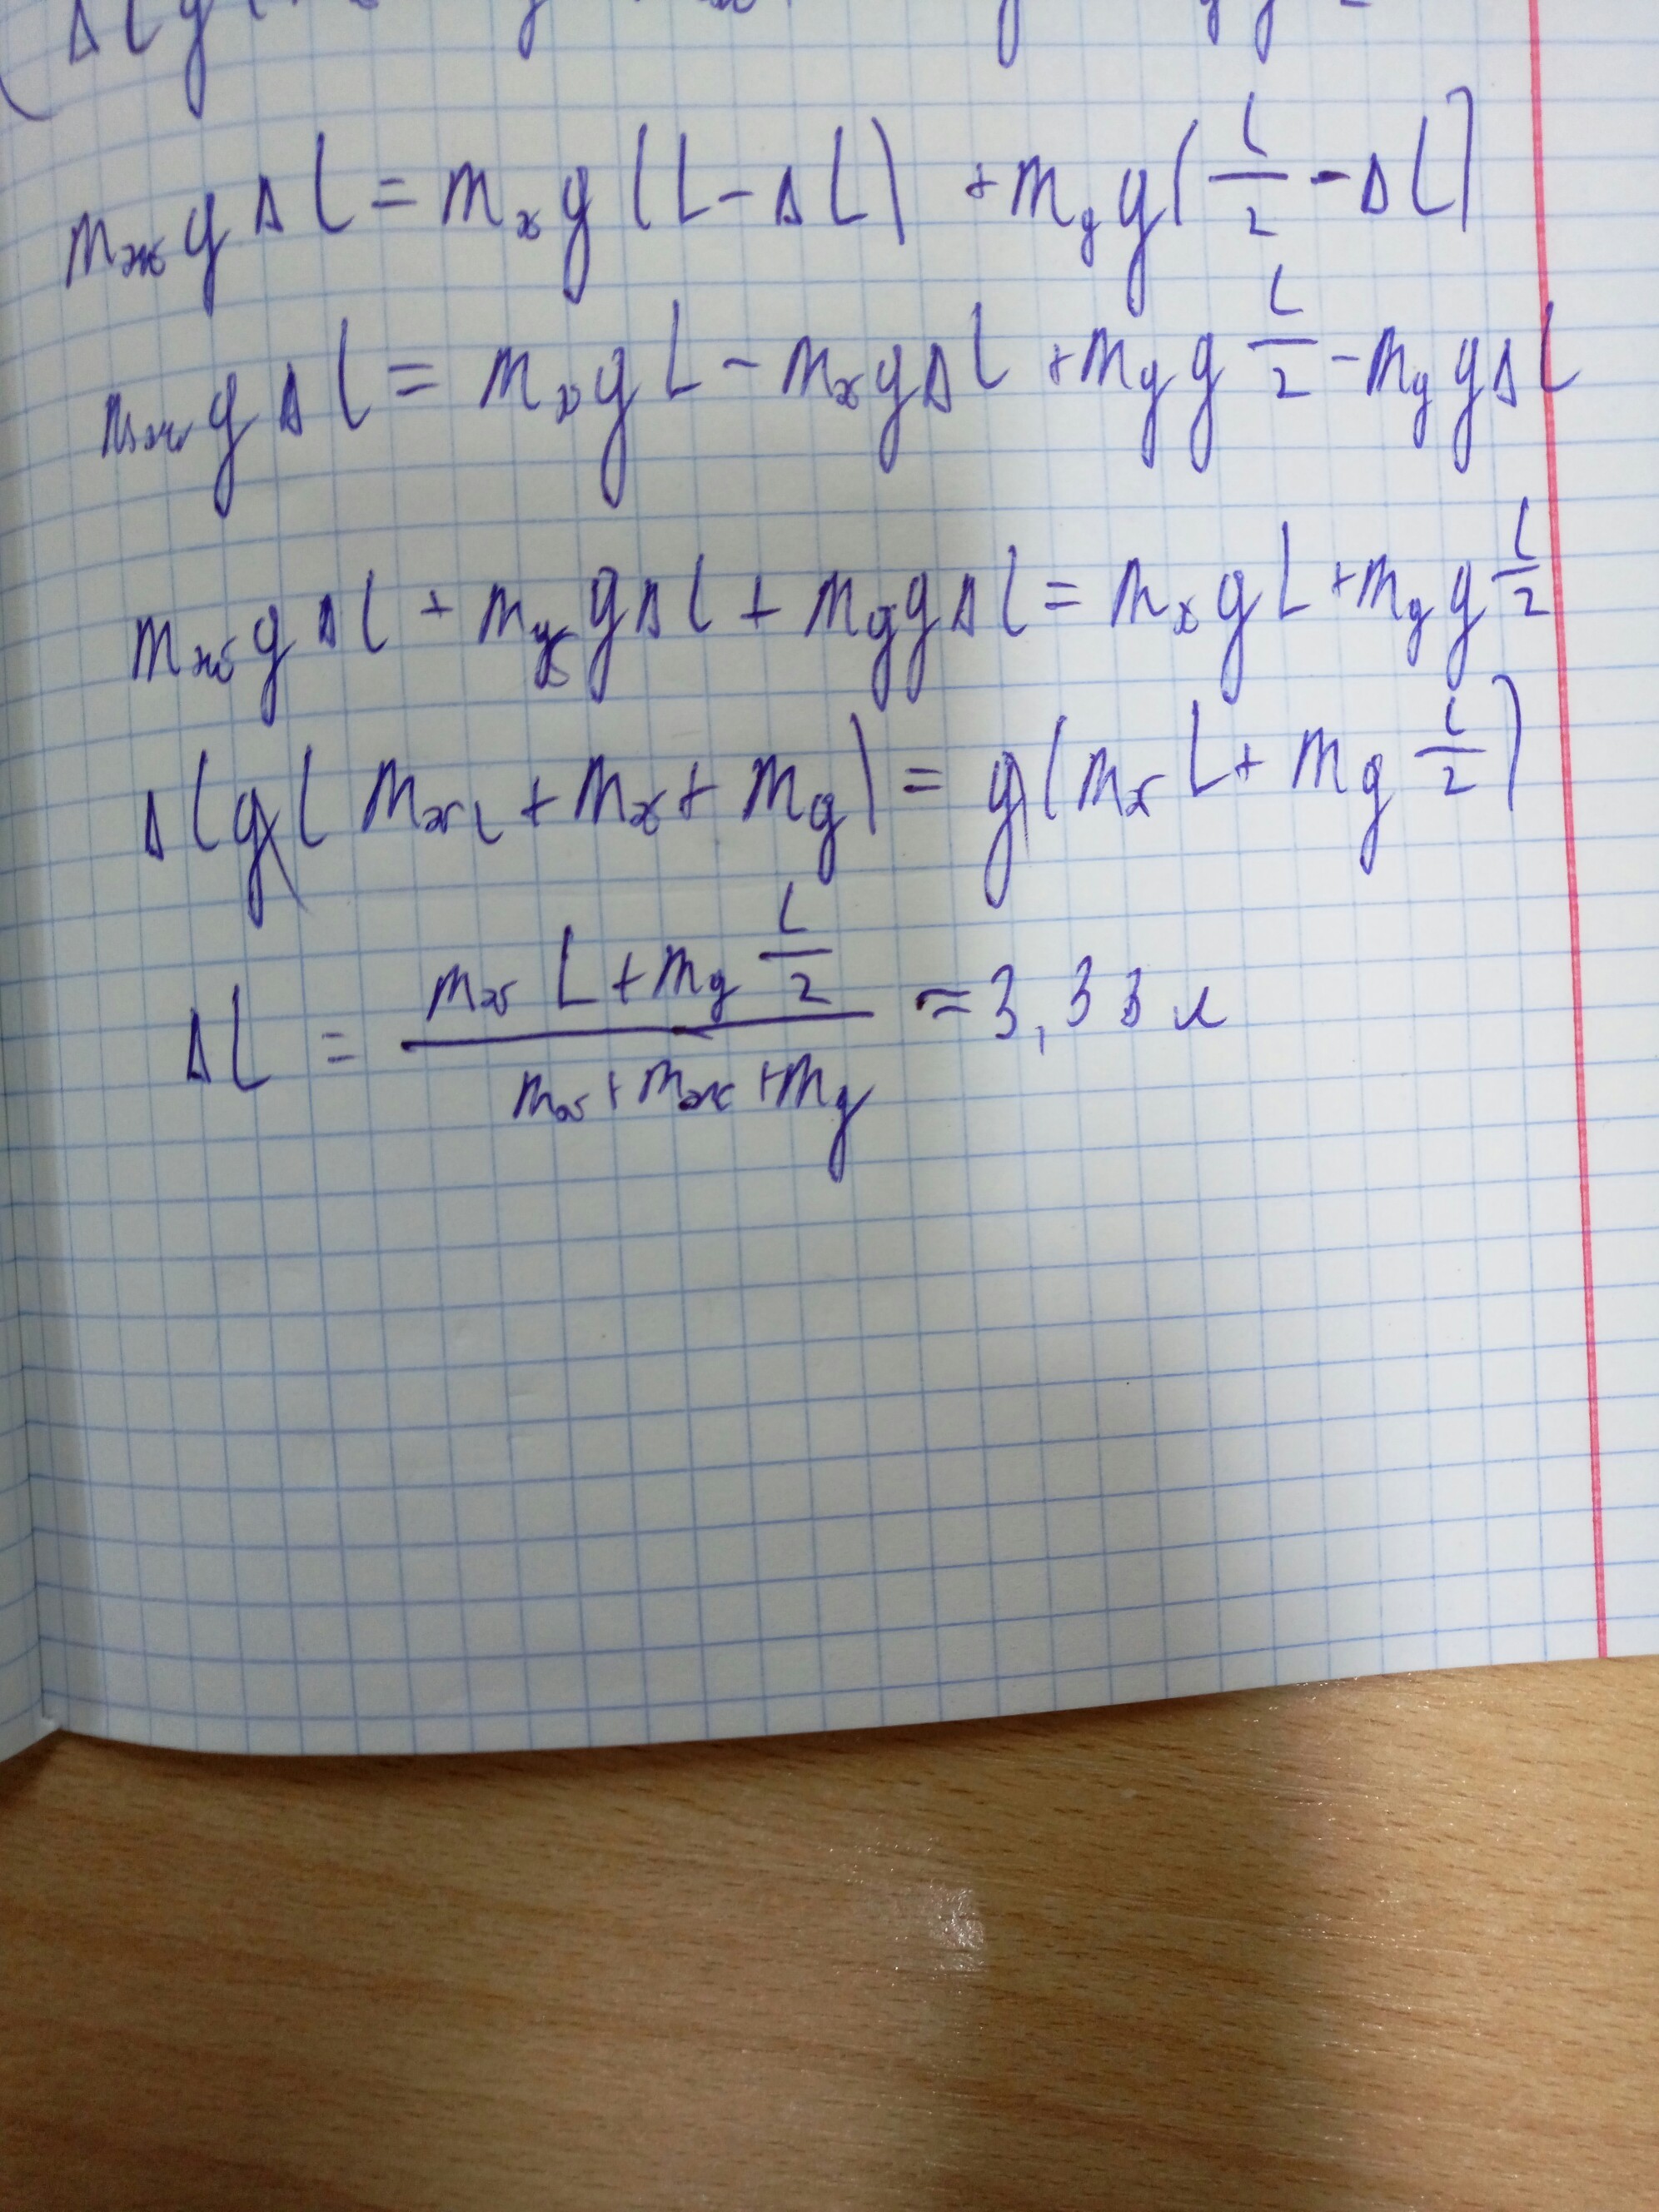 m_ж g Δl = m_x g (L - Δl) + m_g g (l/2 - Δl)
m_ж g Δl = m_x g L - m_x g Δl + m_g g l/2 - m_g g Δl
m_ж g Δl + m_x g Δl + m_g g Δl = m_x g L + m_g g l/2
Δl g (m_ж + m_x + m_g) = g (m_x L + m_g l/2)
ΔL = (m_x L + m_g L/2) / (m_x + m_ж + m_g) ≈ 3,33 м